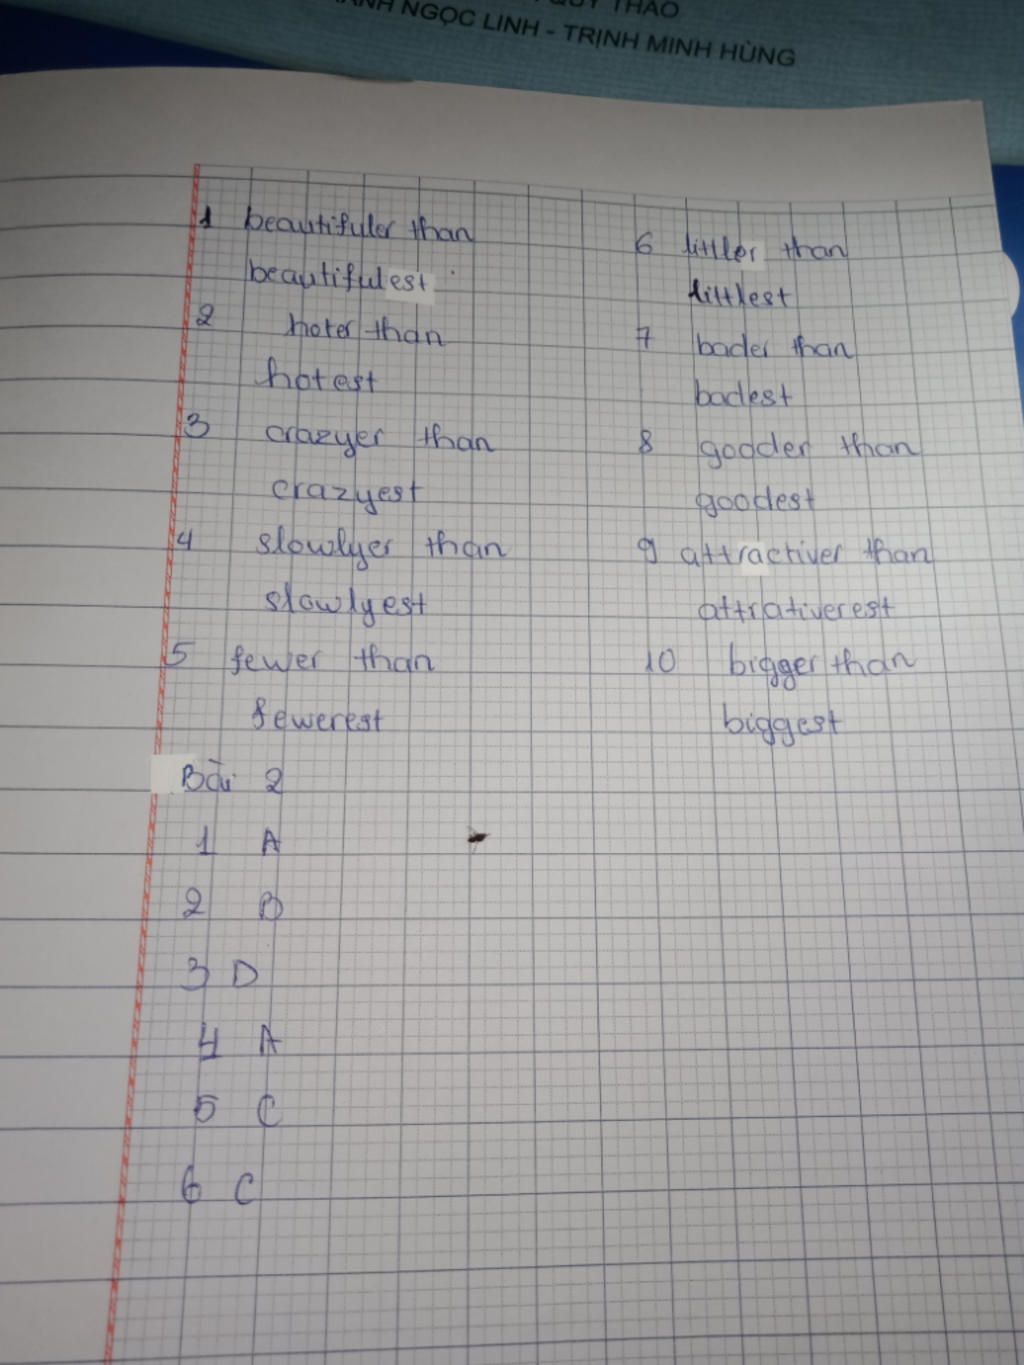 QUÝ THAO
NGỌC LINH - TRỊNH MINH HÙNG
1 beautifuler than
beautifulest
2 hoter than
hotest
3 crazyer than
crazyest
4 slowlyer than
slowlyest
5 fewer than
fewerest
6 littler than
littlest
7 bader than
badest
8 gooder than
goodest
9 attractiver than
attrativerest
10 bigger than
biggest
Bài 2
1 A
2 B
3 D
4 A
5 C
6 C